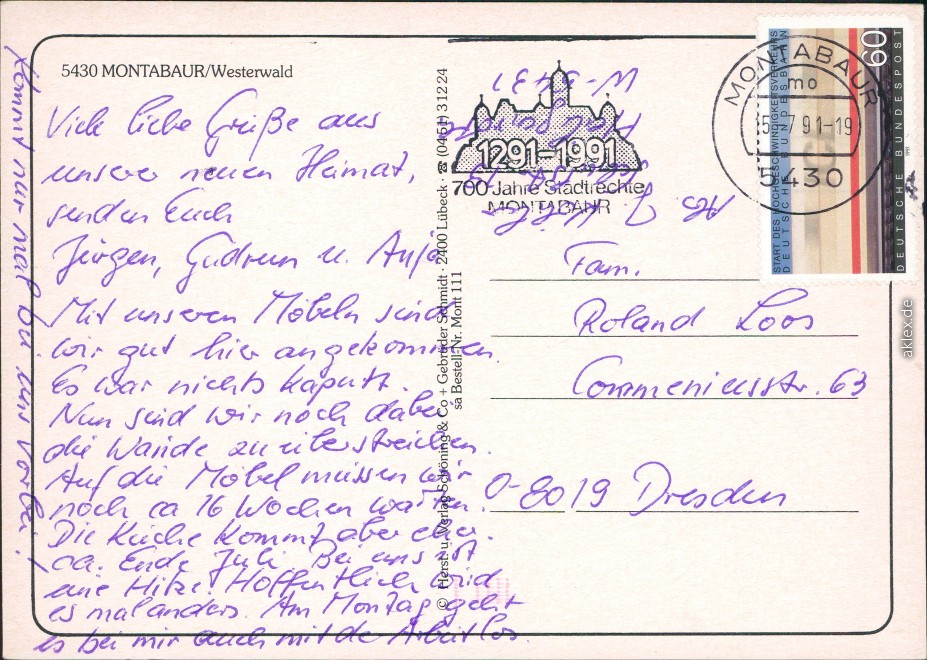 5430 MONTABAUR/Westerwald
Viele liebe Grüße aus
unserer neuen Heimat,
senden Euch
Jürgen, Gudrun u. Anja
Mit unseren Möbeln sind
wir gut hier angekommen.
Es war nichts kaputt.
Nun sind wir noch dabei
die Wände zu überstreichen.
Auf die Möbel müssen wir
noch ca 16 Wochen warten.
Die Küche kommt aber eher.
ca. Ende Juli. Bei uns ist
eine Hitze. Hoffentlich wird
es mal anders. Am Montag geht
es bei mir auch mit der Arbeit los.
Kommt nur mal bei uns vorbei!
© Herst. u. Verlag Schöning & Co + Gebrüder Schmidt · 2400 Lübeck · ☎ (0451) 31224
sa Bestell-Nr. Mont 111
W-5431
1291–1991
700 Jahre Stadtrechte
MONTABAUR
Abs. J.
MONTABAUR
mo
-7 91-19
5430
60
START DES HOCHGESCHWINDIGKEITSVERKEHRS
DEUTSCHE BUNDESBAHN
DEUTSCHE BUNDESPOST
Fam.
Roland Loos
Commeniusstr. 63
O-8019 Dresden
aklex.de